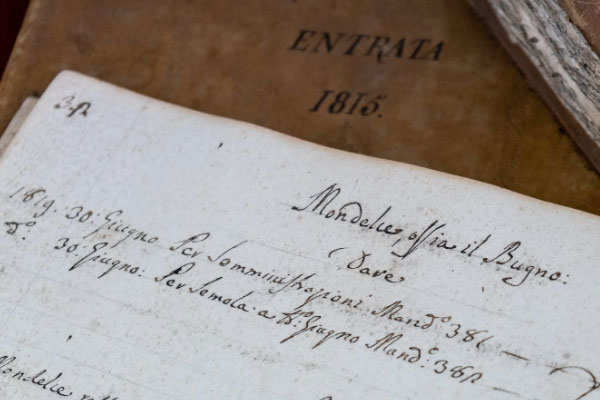 ENTRATA
1815.
Mondelce, ossia il Bugno:
Dare
1819. 30: Giugno Per Somministrazioni Mand.º 381
d.º 30: Giugno: Per Semola: a Giugno Mand:º 382
Mondelce